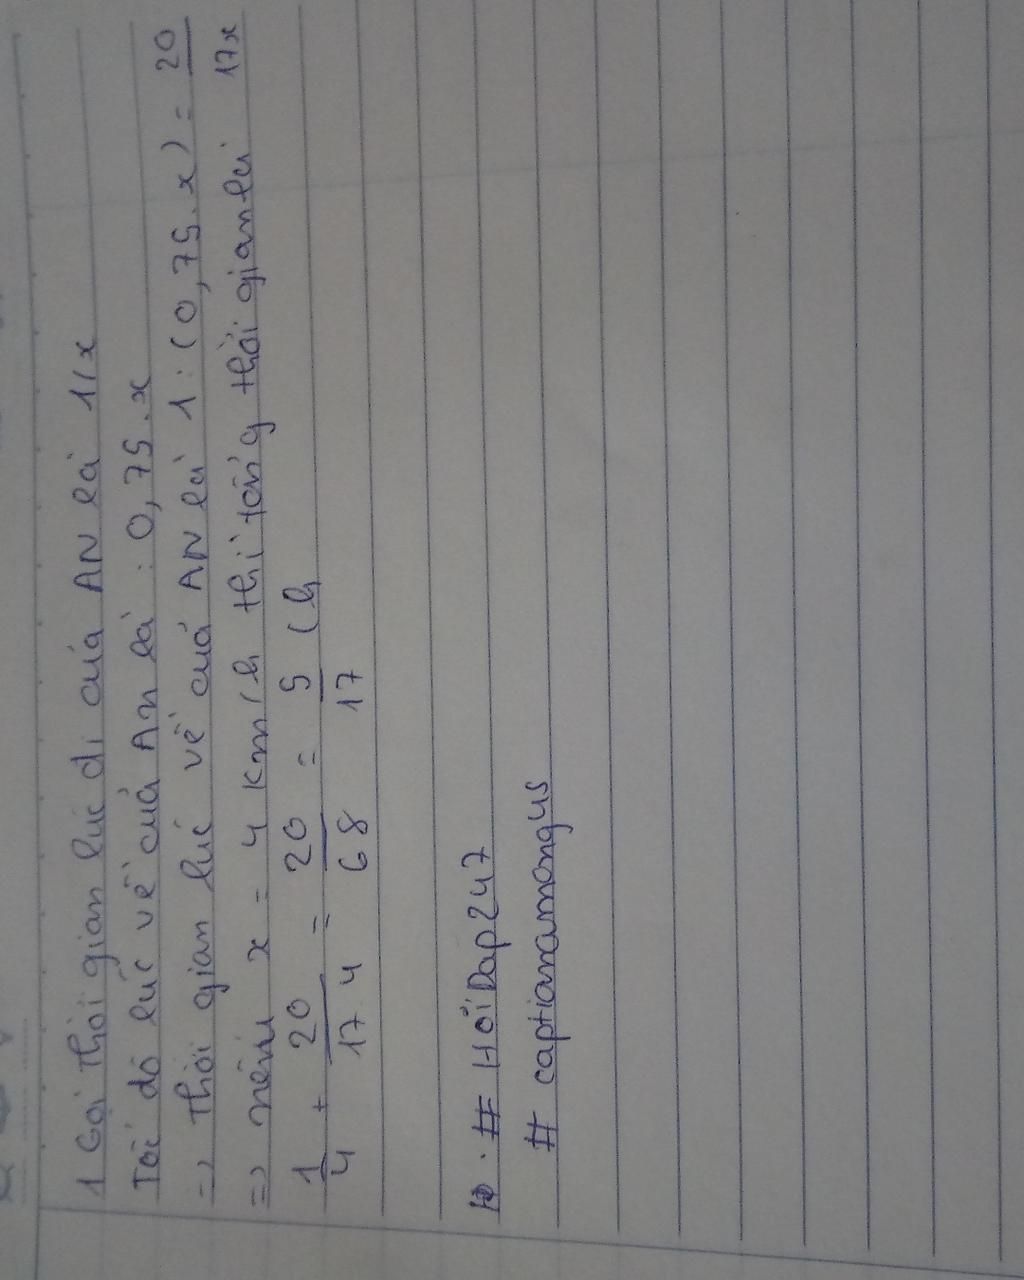 1 Gọi thời gian lúc đi của AN là 1/x
Tốc độ lúc về của An là : 0,75.x
=> Thời gian lúc về của AN là 1 : (0,75.x) = 20/17x
=> nếu x = 4 km/h thì tổng thời gian là
1/4 + 20/17 4 = 20/68 = 5/17 (h
. # HỏiDap247
# captianamongus